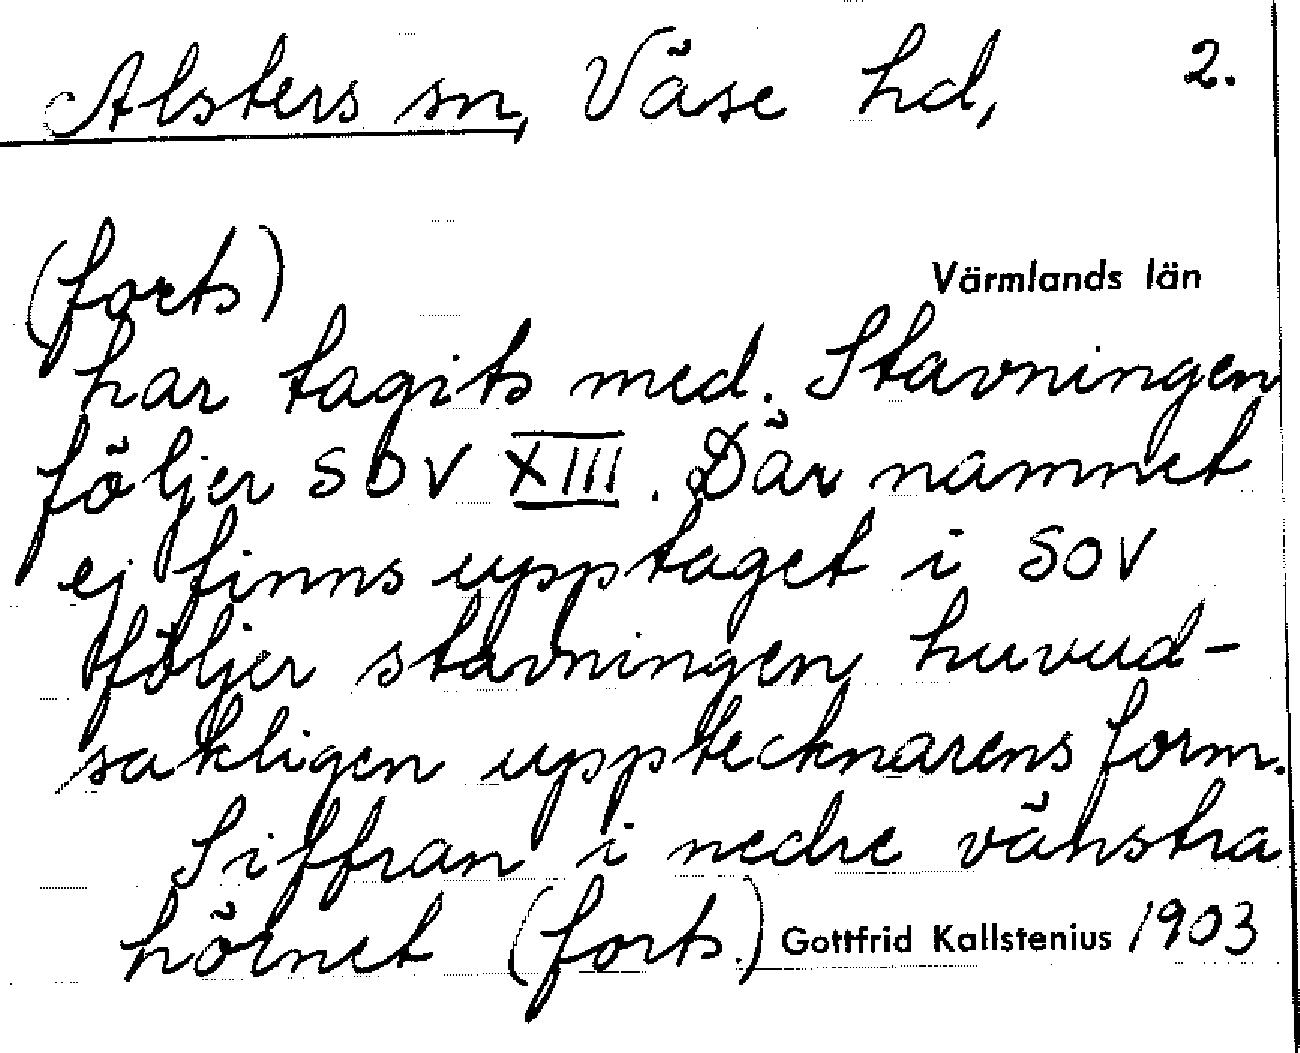 Alsters sn, Väse hd, 2.
(forts)
Värmlands län
har tagits med. Stavningen
följer SOV XIII. Där namnet
ej finns upptaget i SOV
följer stavningen huvud-
sakligen upptecknarens form.
Siffran i nedre vänstra
hörnet (forts.) Gottfrid Kallstenius 1903